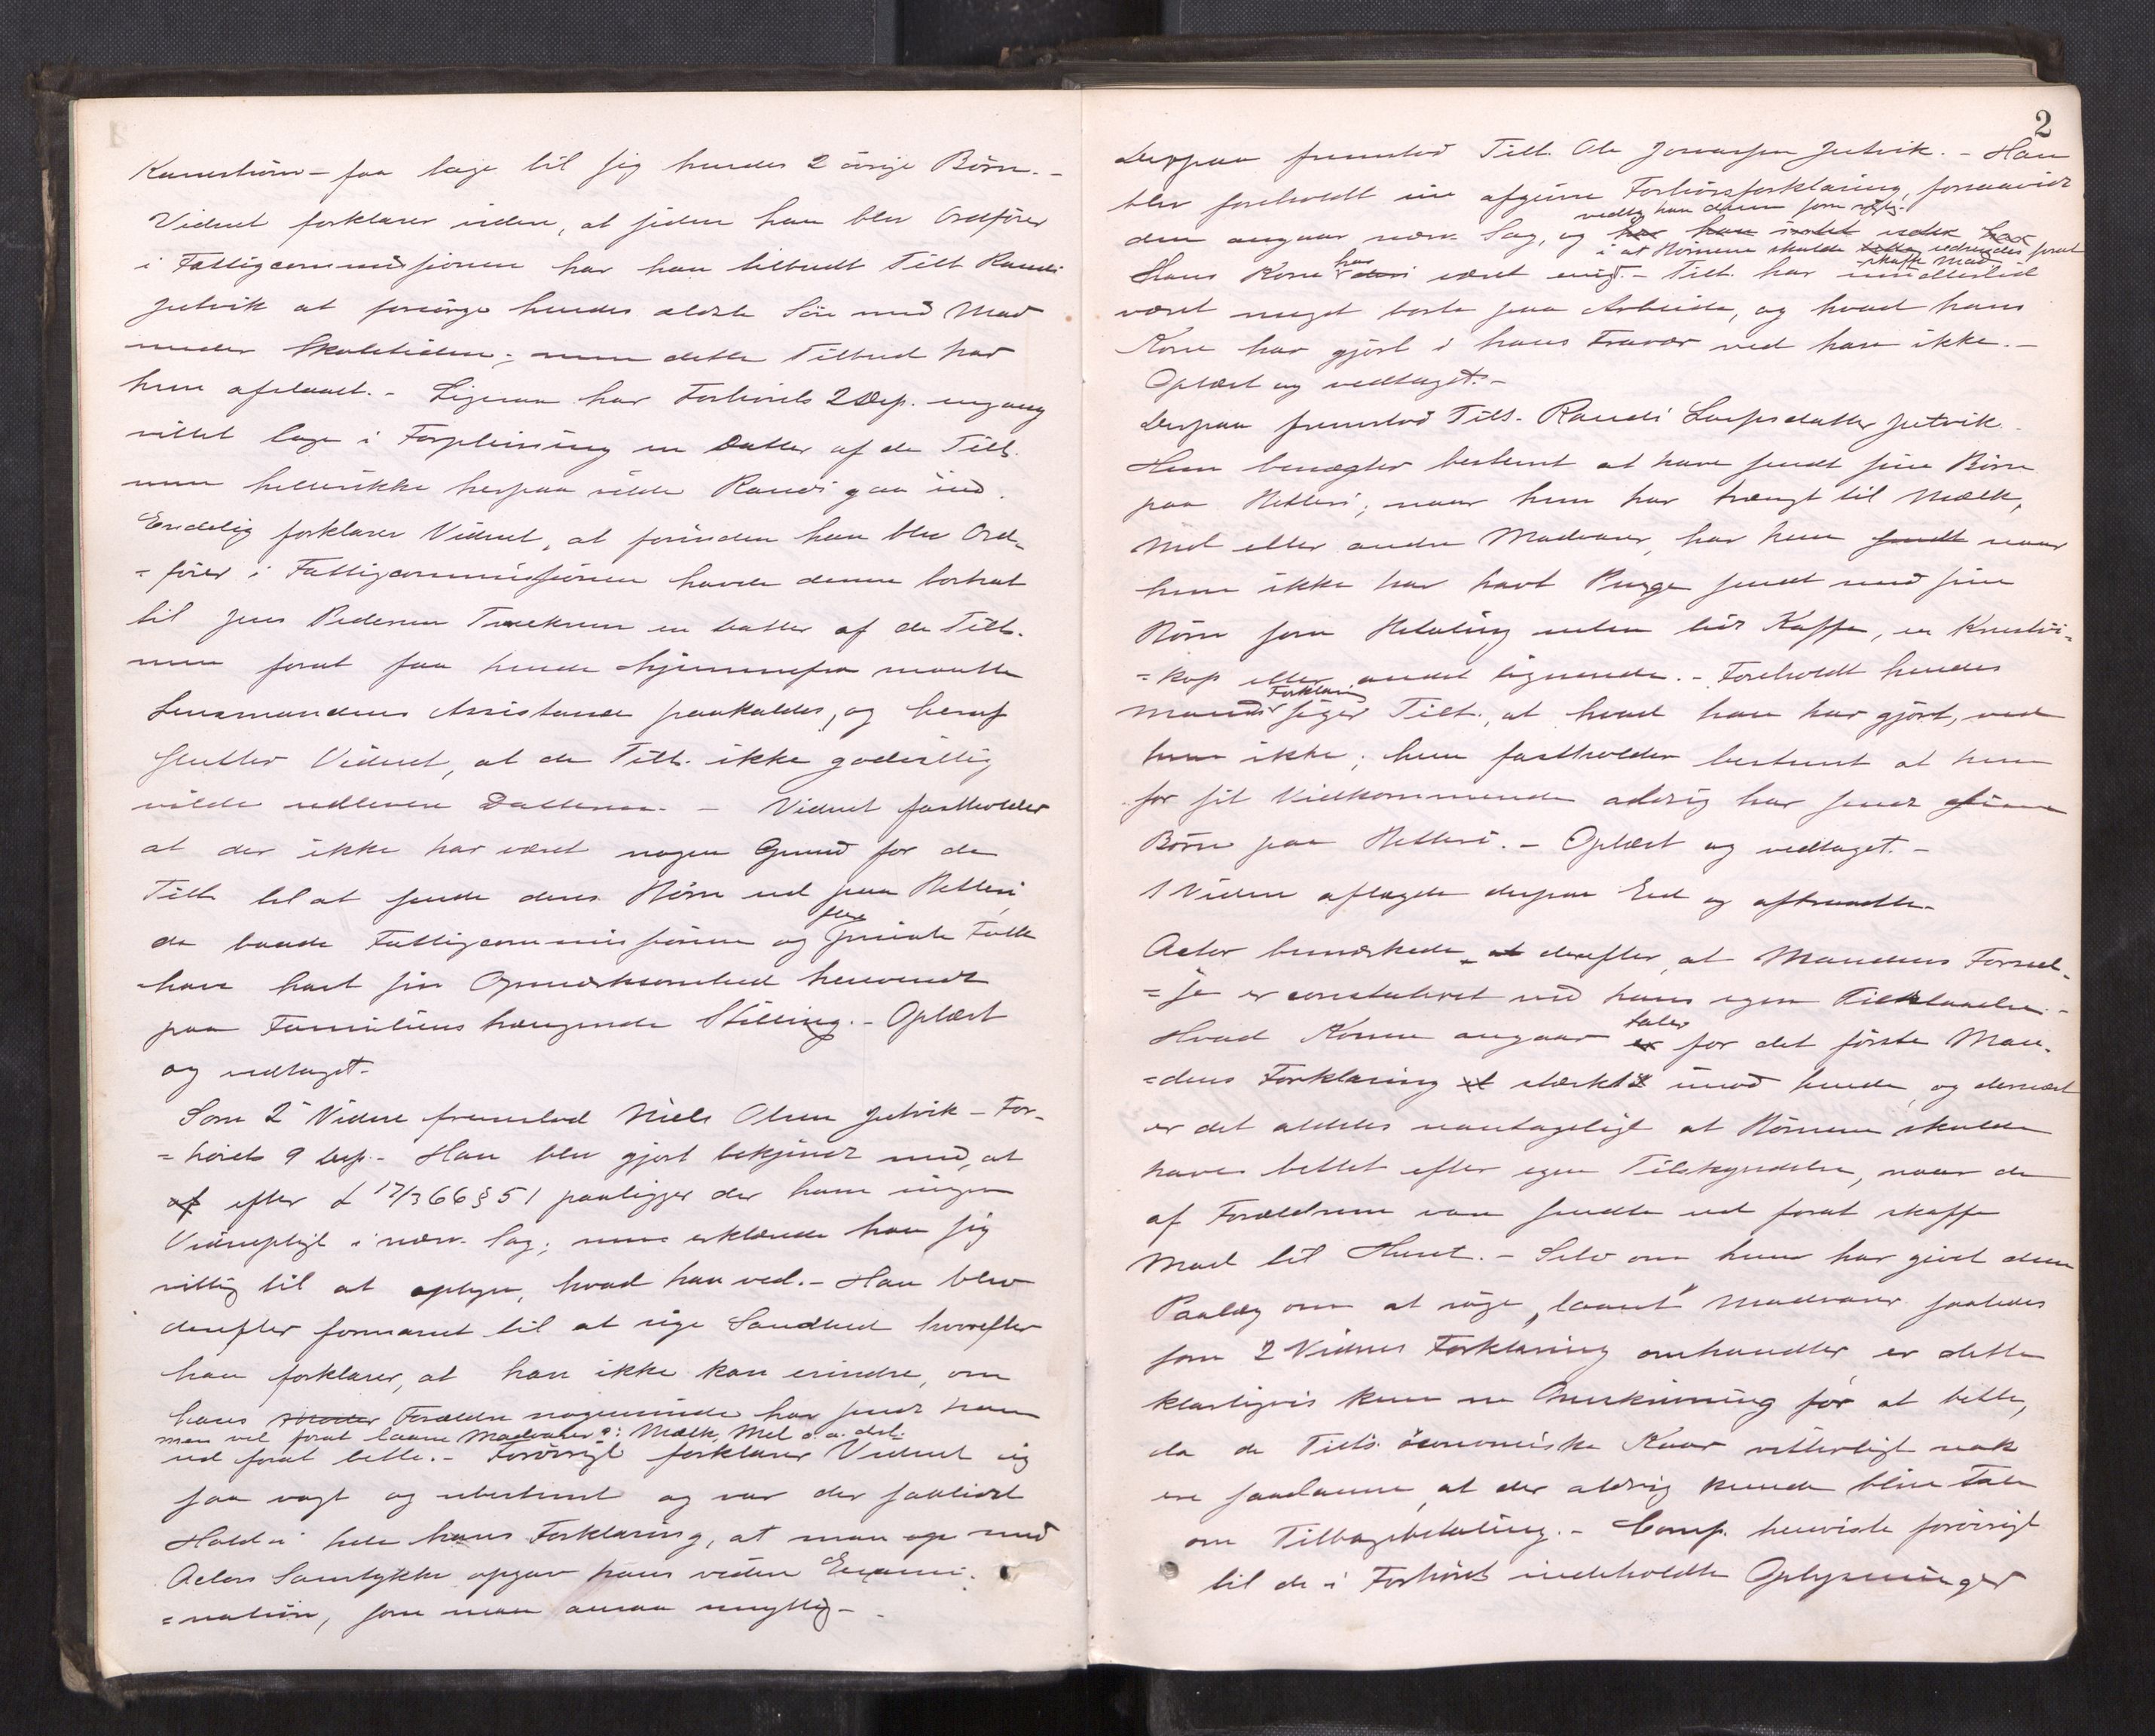 Kanestrøm – faa tage til sig hendes 2 øvrige Børn. –
Vidnet forklarer videre, at siden han blev Ordfører
i Fattigcommissionen har han tilbudt Tilt Randi
Jutvik at forsørge hendes ældste Søn med Mad
under Skoletiden; men dette Tilbud har
hun afslaaet. – Ligesaa har Forhørets 2 Dep. engang
villet tage i Forpleining en Datter af de Tilt.
men hellerikke herpaa vilde Randi gaa ind.
Endelig forklarer Vidnet, at førinden han blev Ord-
=fører i Fattigcommissionen havde denne bortsat
til Jens Pedersen en Datter af de Tilt.
men forat faa hende hjemmefra maatte
Lensmandens Assistance paakaldes, og heraf
slutter Vidnet, at de Tilt. ikke godvillig
vilde udlevere Datteren. – Vidnet fastholder
at der ikke har været nogen Grund for de
Tilt til at sende deres Børn ud paa Betleri,
da baade Fattigcommissionen og flere private Folk
have havt sin Opmærksomhed henvendt
paa Familiens trængende Stilling. – Oplæst
og vedtaget. –
Som 2det Vidne fremstod Niels Olsen Jutvik – For-
=hørets 9 Dep. – Han blev gjort bekjendt med, at
af efter L 17/3 66 § 51 paaligger der ham ingen
Vidnepligt i nærv. Sag; men erklærede han sig
villig til at oplyse, hvad han ved. – Han blev
derefter formanet til at sige Sandhed hvorefter
han forklarer, at han ikke kan erindre, om
hans Forældre nogensinde har sendt ham
men vel forat laane Madvarer ɔ: Mælk, Mel o.a. desl.
ud forat betle. – Forøvrigt forklarer Vidnet sig
saa vagt og ubestemt og var der saalidet
Hold i hele hans Forklaring, at man op med
Actors Samtykke opgav hans videre Exami-
=nation, som man ansaa unyttig –
2
Derpaa fremstod Tilt. Ole Jonassen Jutvik. – Han
blev foreholdt sin afgivne Forhørsforklaring, forsaavidt
vedtog han denne som rigtig.
den angaar nærv. Sag, og har han intet videre
i at Børnene skulde betle udsendes forat
skaffe Mad
Hans Kone har været enig. – Tilt. har imidlertid
været meget borte paa Arbeide, og hvad hans
Kone har gjort i hans Fravær ved han ikke. –
Oplæst og vedtaget. –
Derpaa fremstod Tilt. Randi Larsdatter Jutvik.
Hun benægter bestemt at have sendt sine Børn
paa Betleri; naar hun har trængt til Mælk,
Mel eller andre Madvarer, har hun sendt naar
hun ikke har havt Penge sendt med sine
Børn som Betaling enten lidt Kaffe, en
=kop eller andet lignende. – Foreholdt hendes
Mands Forklaring siger Tilt., at hvad han har gjort, ved
hun ikke; hun fastholder bestemt at hun
for sit Vedkommende aldrig har sendt sine
Børn paa Betleri. – Oplæst og vedtaget. –
1 Vidne aflagde derpaa Eed og aftraadte. –
Actor bemærkede at derefter, at Mandens Forseel-
=se er constateret ved hans egen Tilstaaelse. –
Hvad Konen angaar er taler for det første Man-
=dens Forklaring stærkt imod hende, og dernæst
er det aldeles uantageligt at Børnene skulde
have betlet efter egen Tilskyndelse, naar de
af Forældrene vare sendte ud forat skaffe
Mad til Huset. – Selv om hun har givet dem
Paalæg om at sige „laant“ Madvarer saaledes
som 2 Vidnes Forklaring omhandler er dette
klarligvis kun en Omskrivning for at betle,
da de Tilt's økonomiske Kaar vitterligt nok
ere saadanne, at der aldrig kunde blive Tale
om Tilbagebetaling. – Comp. henviste forøvrigt
til de i Forhøret indeholdte Oplysninger